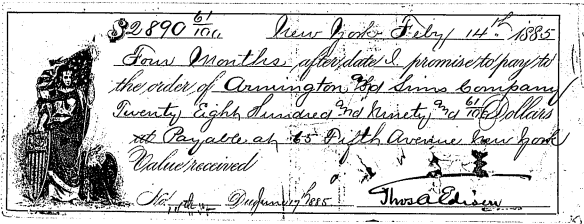 $2890 61/100 New York Feby 14th 1885
Four Months after date I promise to pay to
the order of Armington and Sims Company
Twenty Eight Hundred and Ninety and 61/100 Dollars
at Payable at 65 Fifth Avenue New York
Value received
No. Due June 17th 1885 Thos A Edison